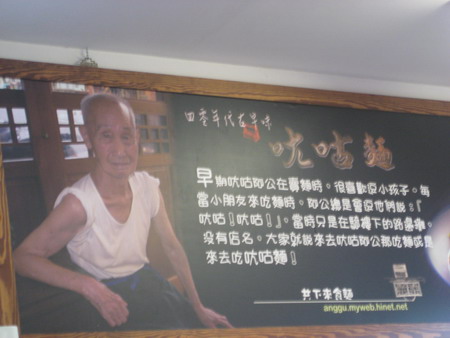 四零年代古早味
吭咕麵
早期吭咕叔公在賣麵時。很喜歡逗小孩子。每
當小朋友來吃麵時。叔公總是會逗他們說：『
吭咕！吭咕！』。當時只是在騎樓下的路邊攤。
沒有店名。大家就說來去吭咕叔公那吃麵或是
來去吃吭咕麵！
共下來食麵
anggu.myweb.hinet.net